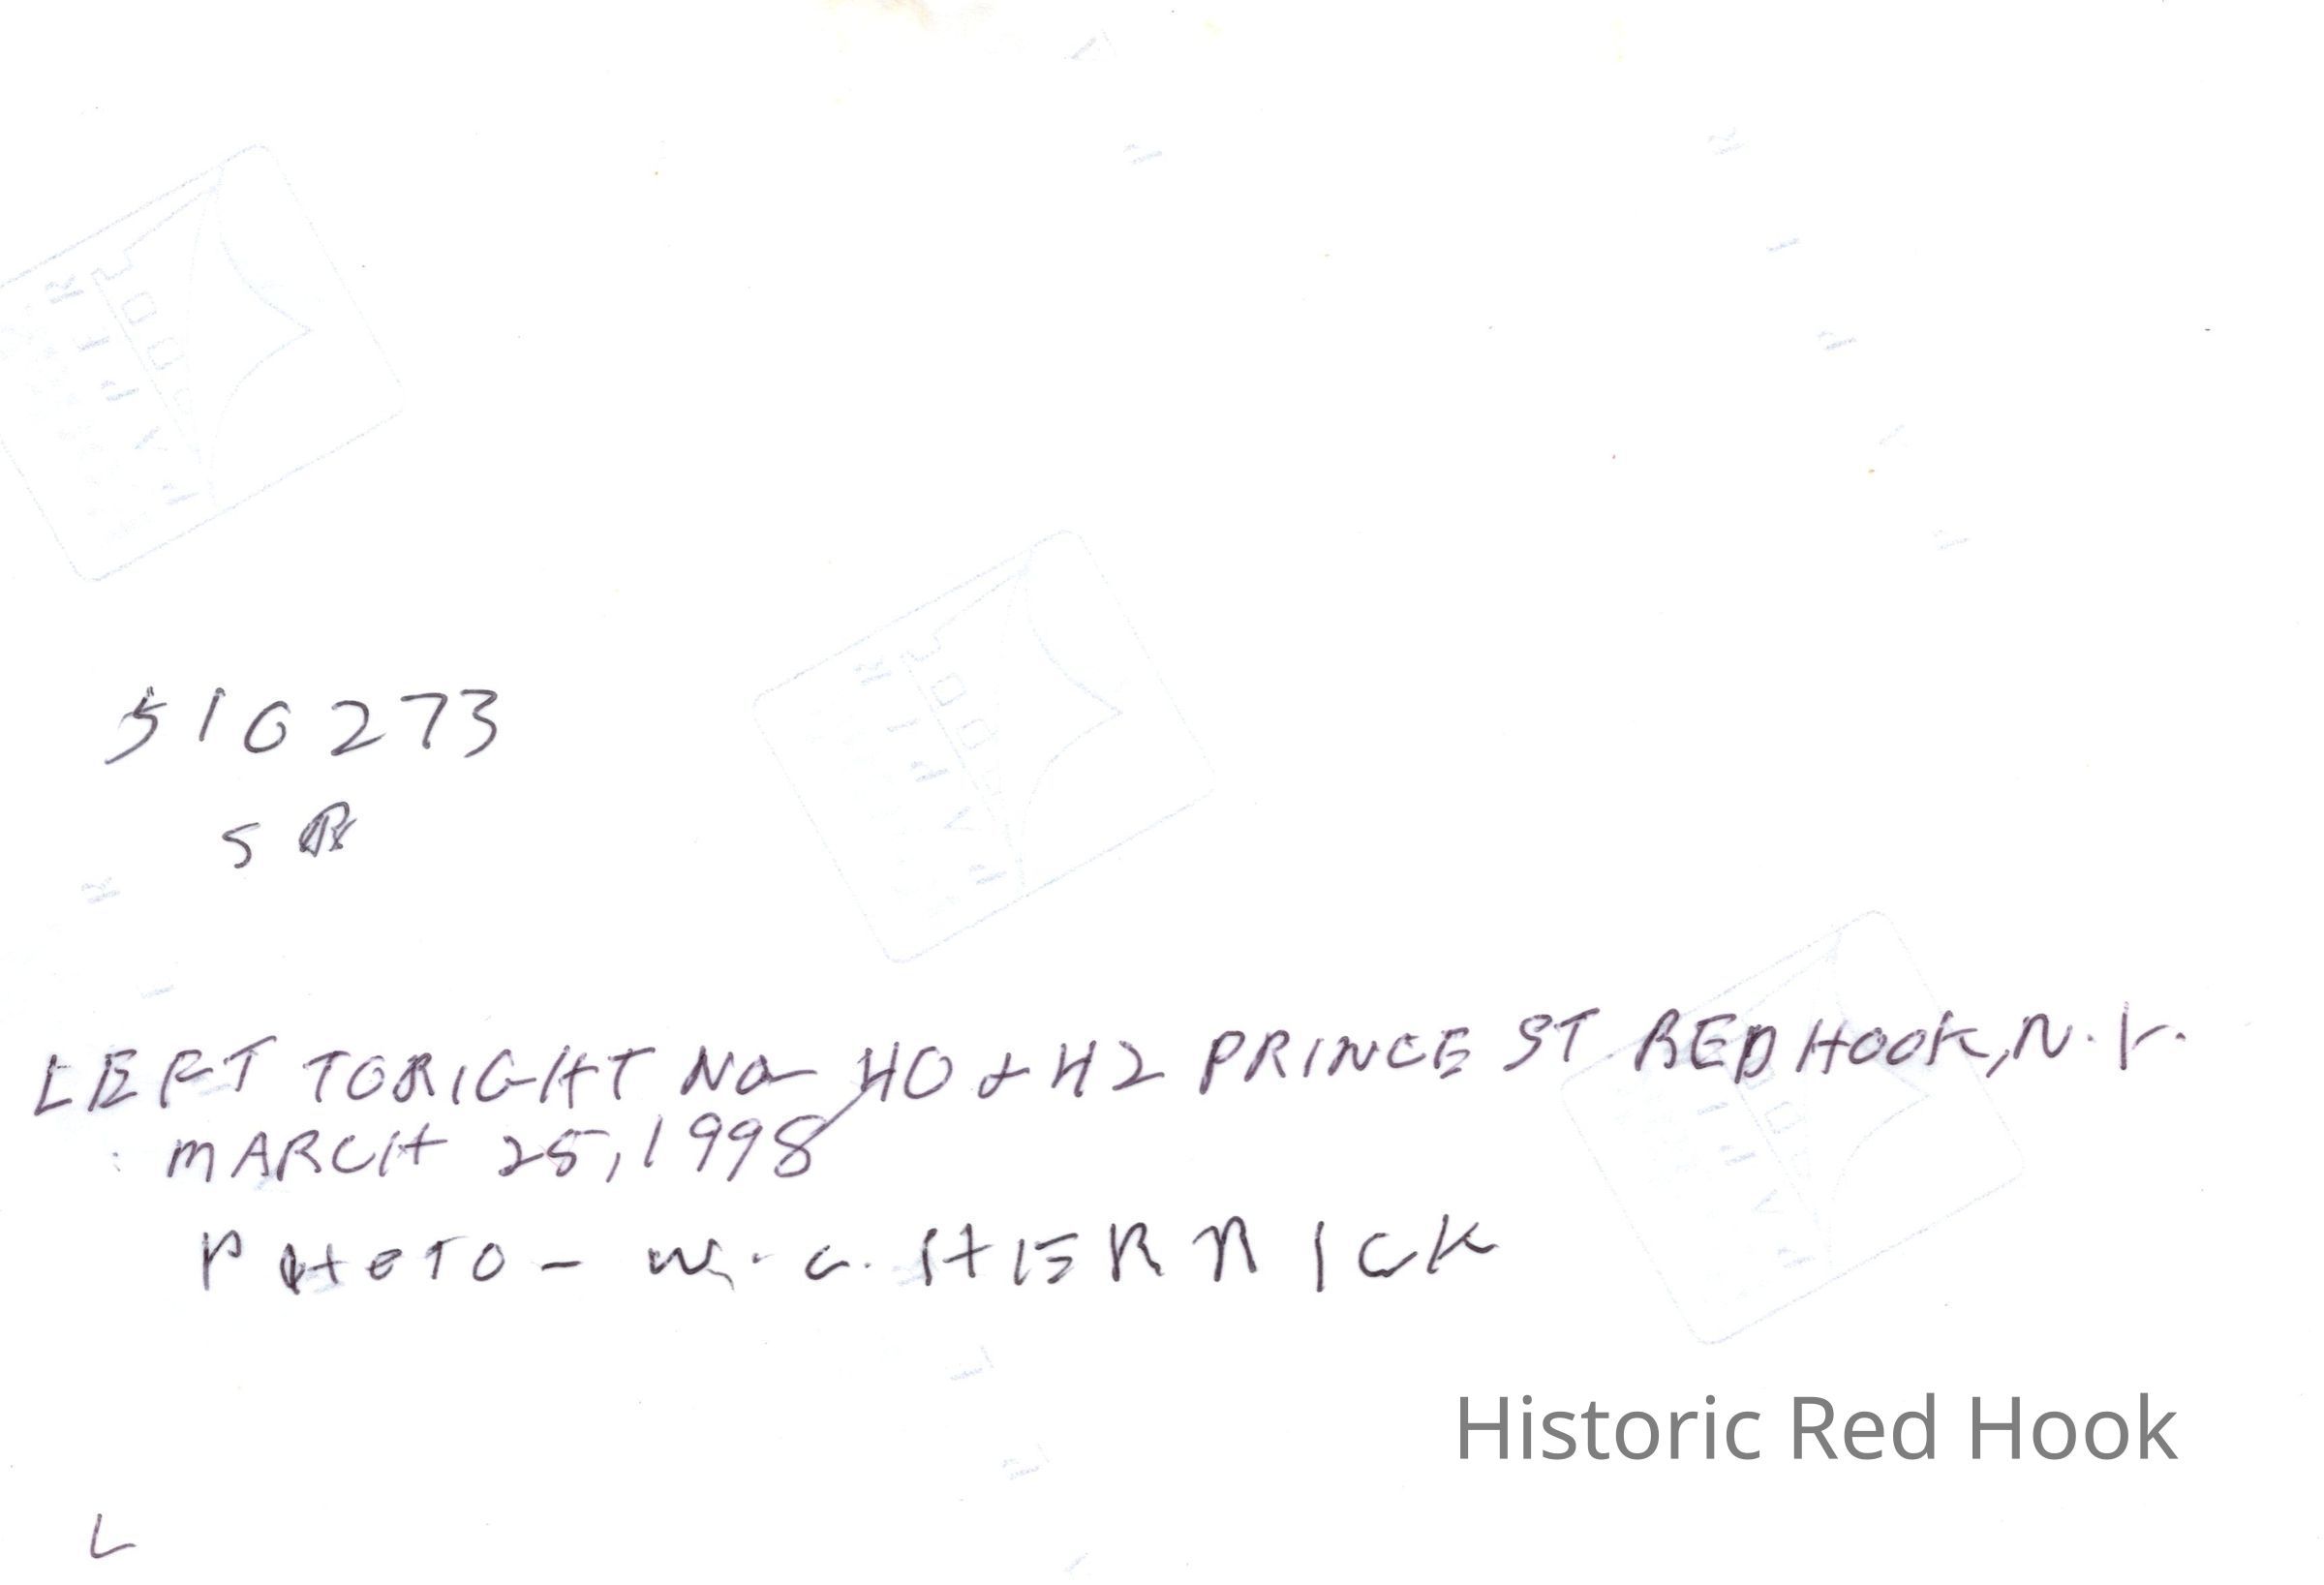 510273
S R
LEFT TO RIGHT NO 40 & 42 PRINCE ST RED HOOK, N.Y.
MARCH 25, 1998
PHOTO - W. C. HERRICK
Historic Red Hook
L